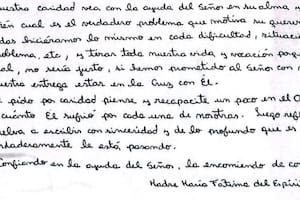 uestra caridad vea con la ayuda del Señor en su alma y
én cual es el verdadero problema que motiva su
das hiciéramos lo mismo en cada dificultad, situaci
oblema, etc, y tirar toda nuestra vida y vocación por
al, no sería justo, si hemos prometido al Señor con
estra entrega estar en la Cruz con El.
e pido por caridad piense y recapacite un poco en el C
cuánto El sufrió por cada una de nosotras. Luego
elva a escribir con sinceridad y de lo profundo que es
rdaderamente le está pasando.
onfiando en la ayuda del Señor, la encomiendo de co
Madre María Fátima del Espíri